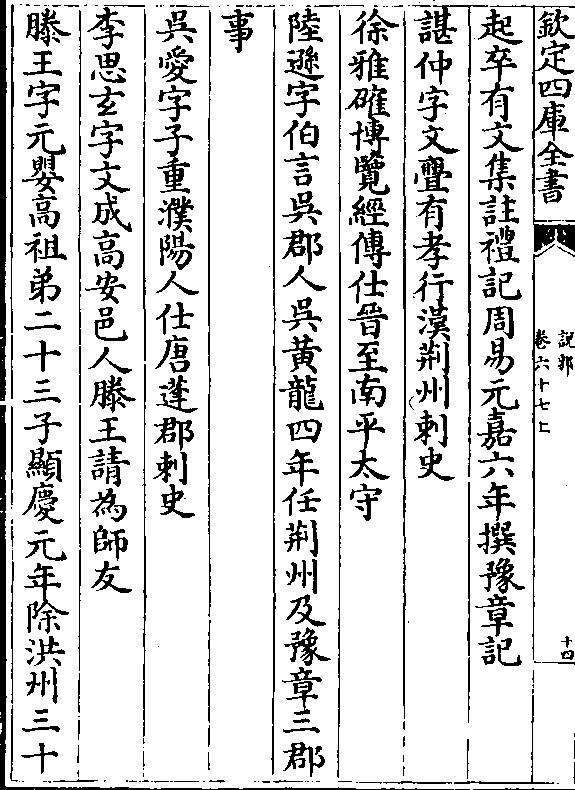 欽定四庫全書
說郛
卷六十七上
十四
起卒有文集註禮記周易元嘉六年撰豫章記
諶仲字文疊有孝行漢荆州刺史
徐雅確博覽經傳仕晉至南平太守
陸遜字伯言吳郡人吳黃龍四年任荆州及豫章三郡
事
吳愛字子重濮陽人仕唐蓬郡刺史
李思玄字文成高安邑人滕王請為師友
滕王字元嬰高祖弟二十三子顯慶元年除洪州三十